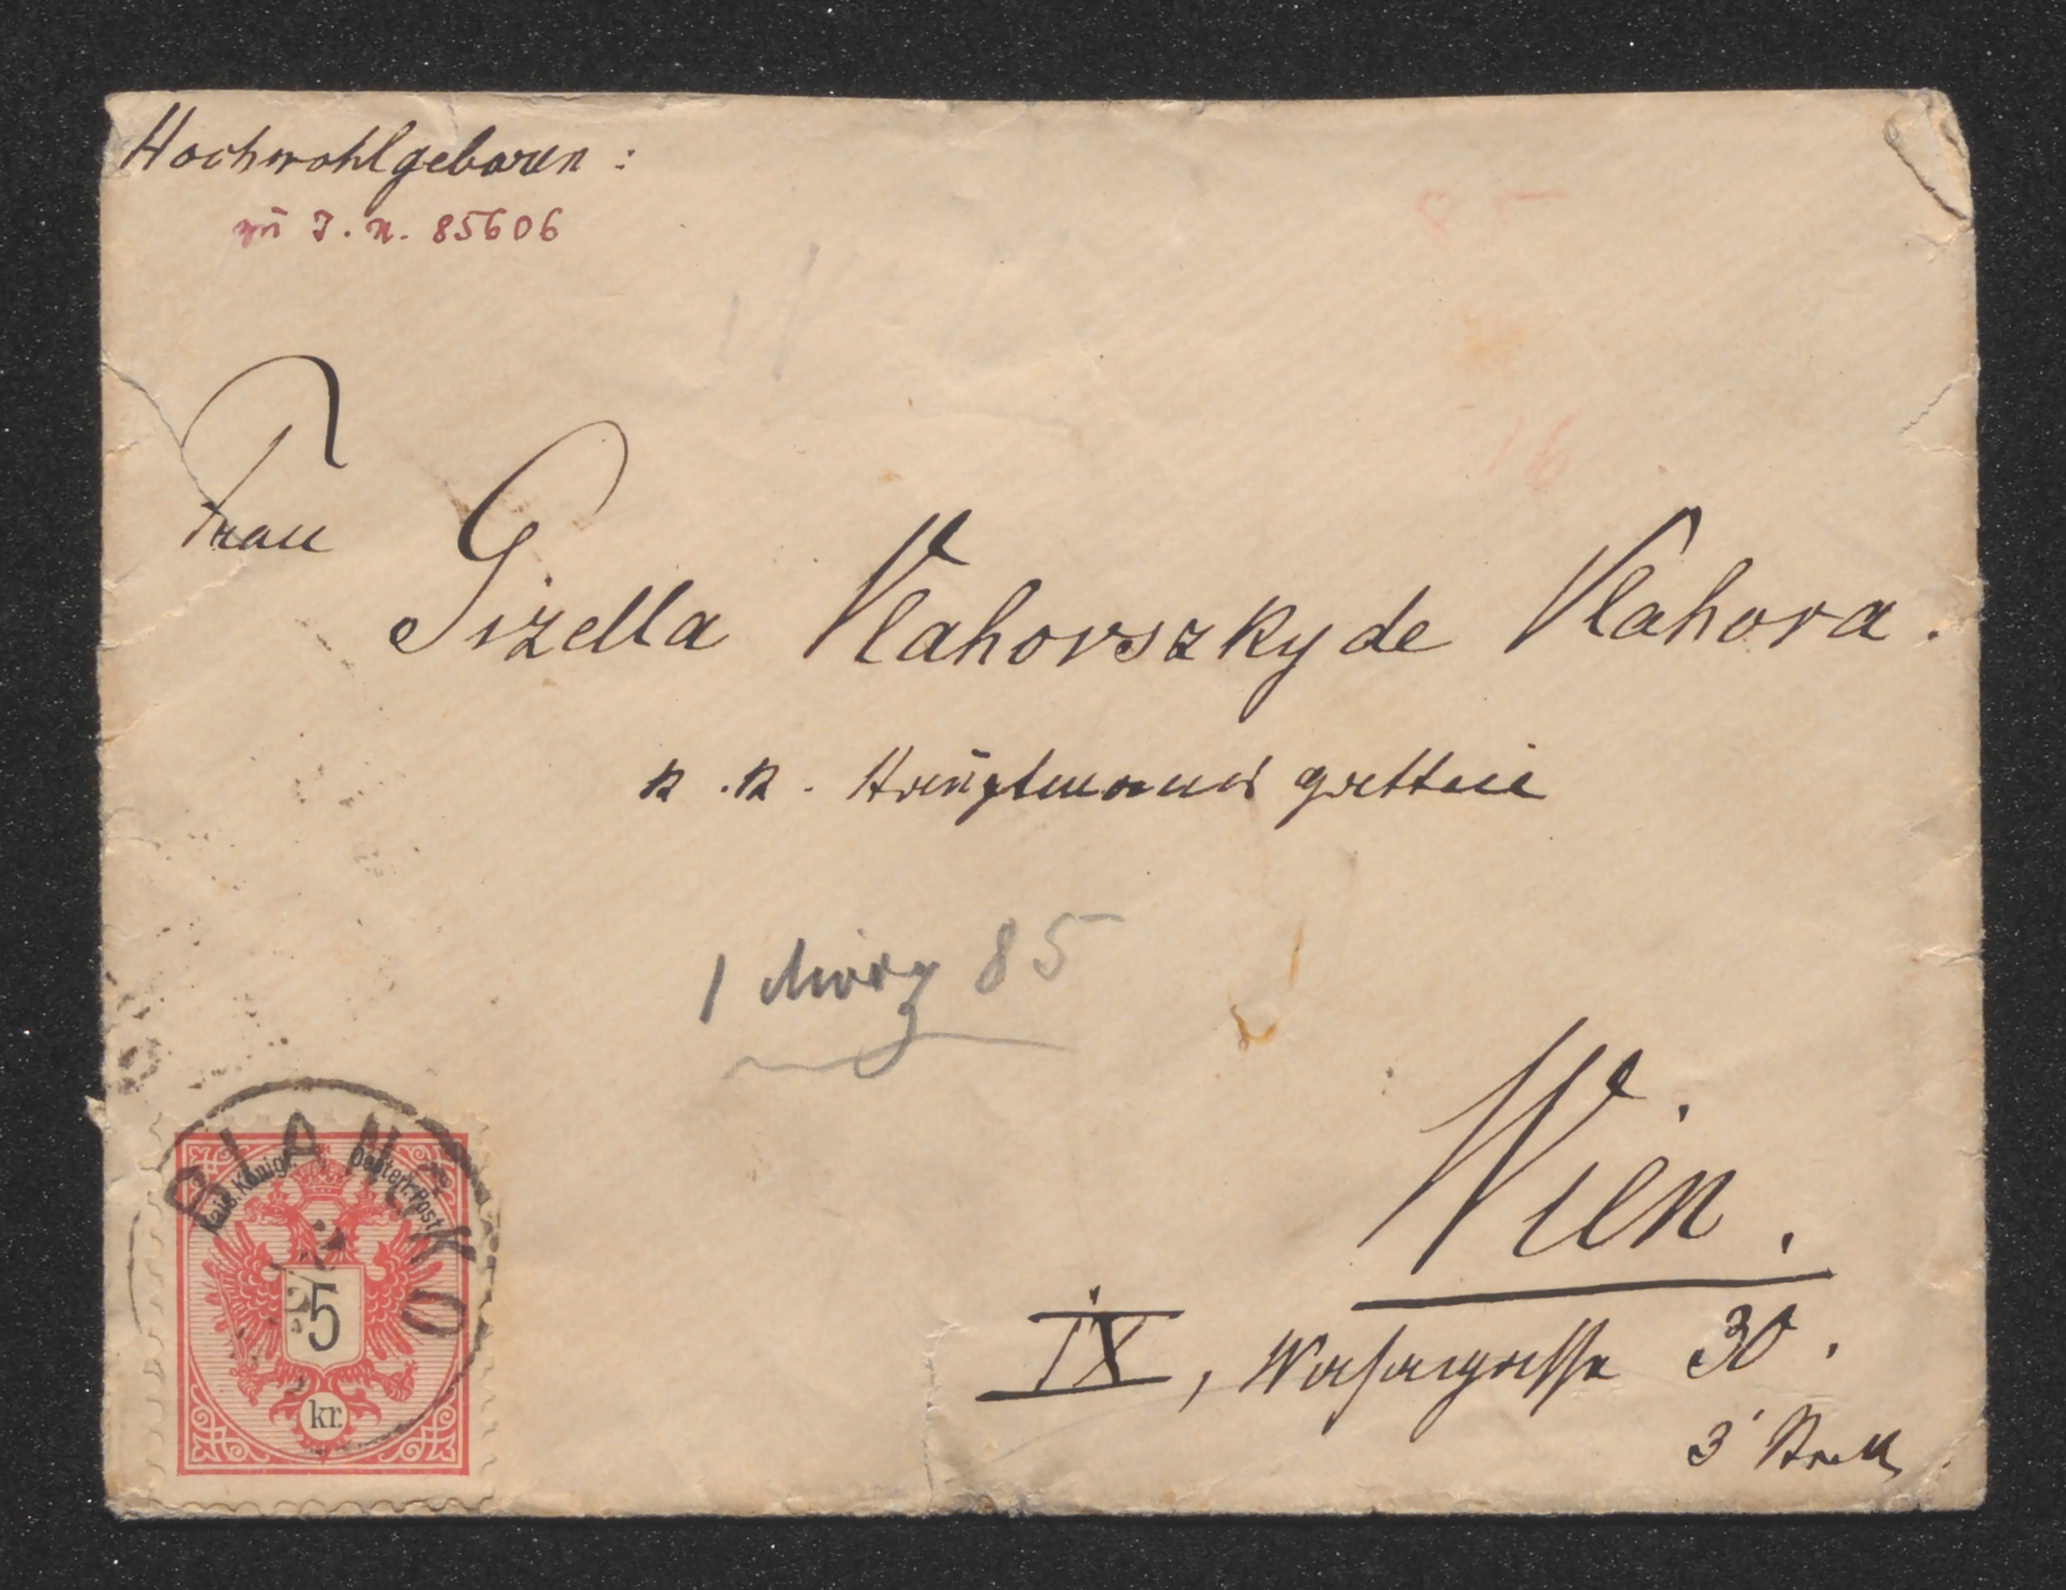 Hochwohlgeboren :
zu I. N. 85606
Frau
Gizella Vlahovszky de Vlahova.
k. k. Hauptmannsgattin
1 März 85
Wien.
IX, Wasagasse 30.
3' Stock
BLANSKO
Kais. Königl. Oesterr. Post
5
kr.